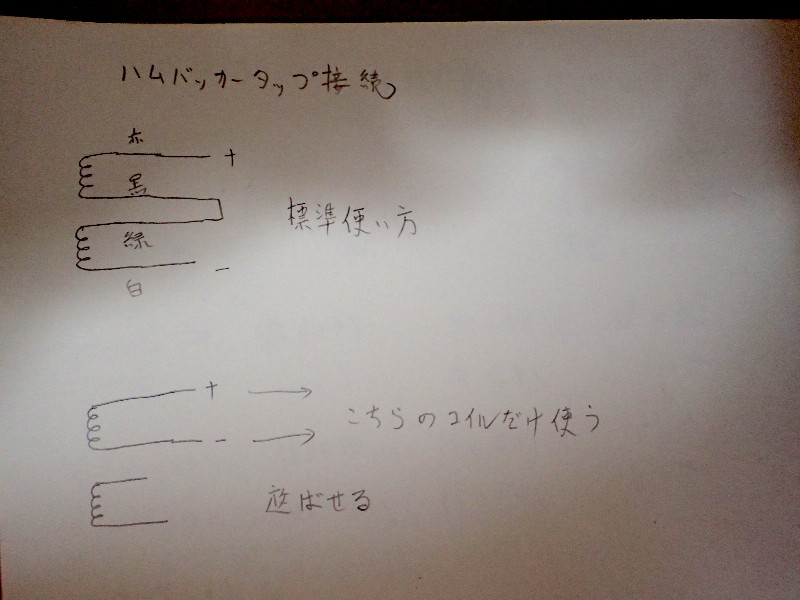 ハムバッカータップ接続
赤
+
黒
標準使い方
緑
-
白
+
こちらのコイルだけ使う
-
遊ばせる